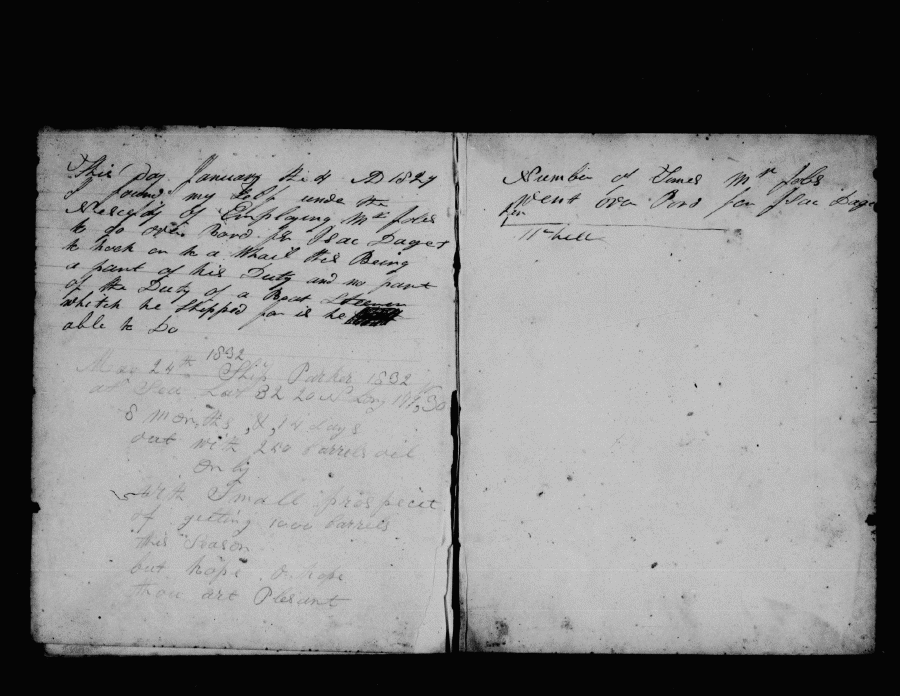 This Day January the 4 AD 1829
I found my Self under the
Necesity of Employing Mr Joles
to go over Bord for Isac Daget
to hook on to a Whail this Being
a part of his Duty and no part
of the Duty of a Boat
whitch he Shipped for is he
able to Do
1832
May 24th Ship Parker 1832
at Sea Lat 32 20 N Long
8 months &
out with 250 barrels oil
Only
With Small prospect
of getting 1000 barrels
this Season
but hope O hope
thou art Plesant
Number of Times Mr Joles
Went over Bord for Isac Daget
for